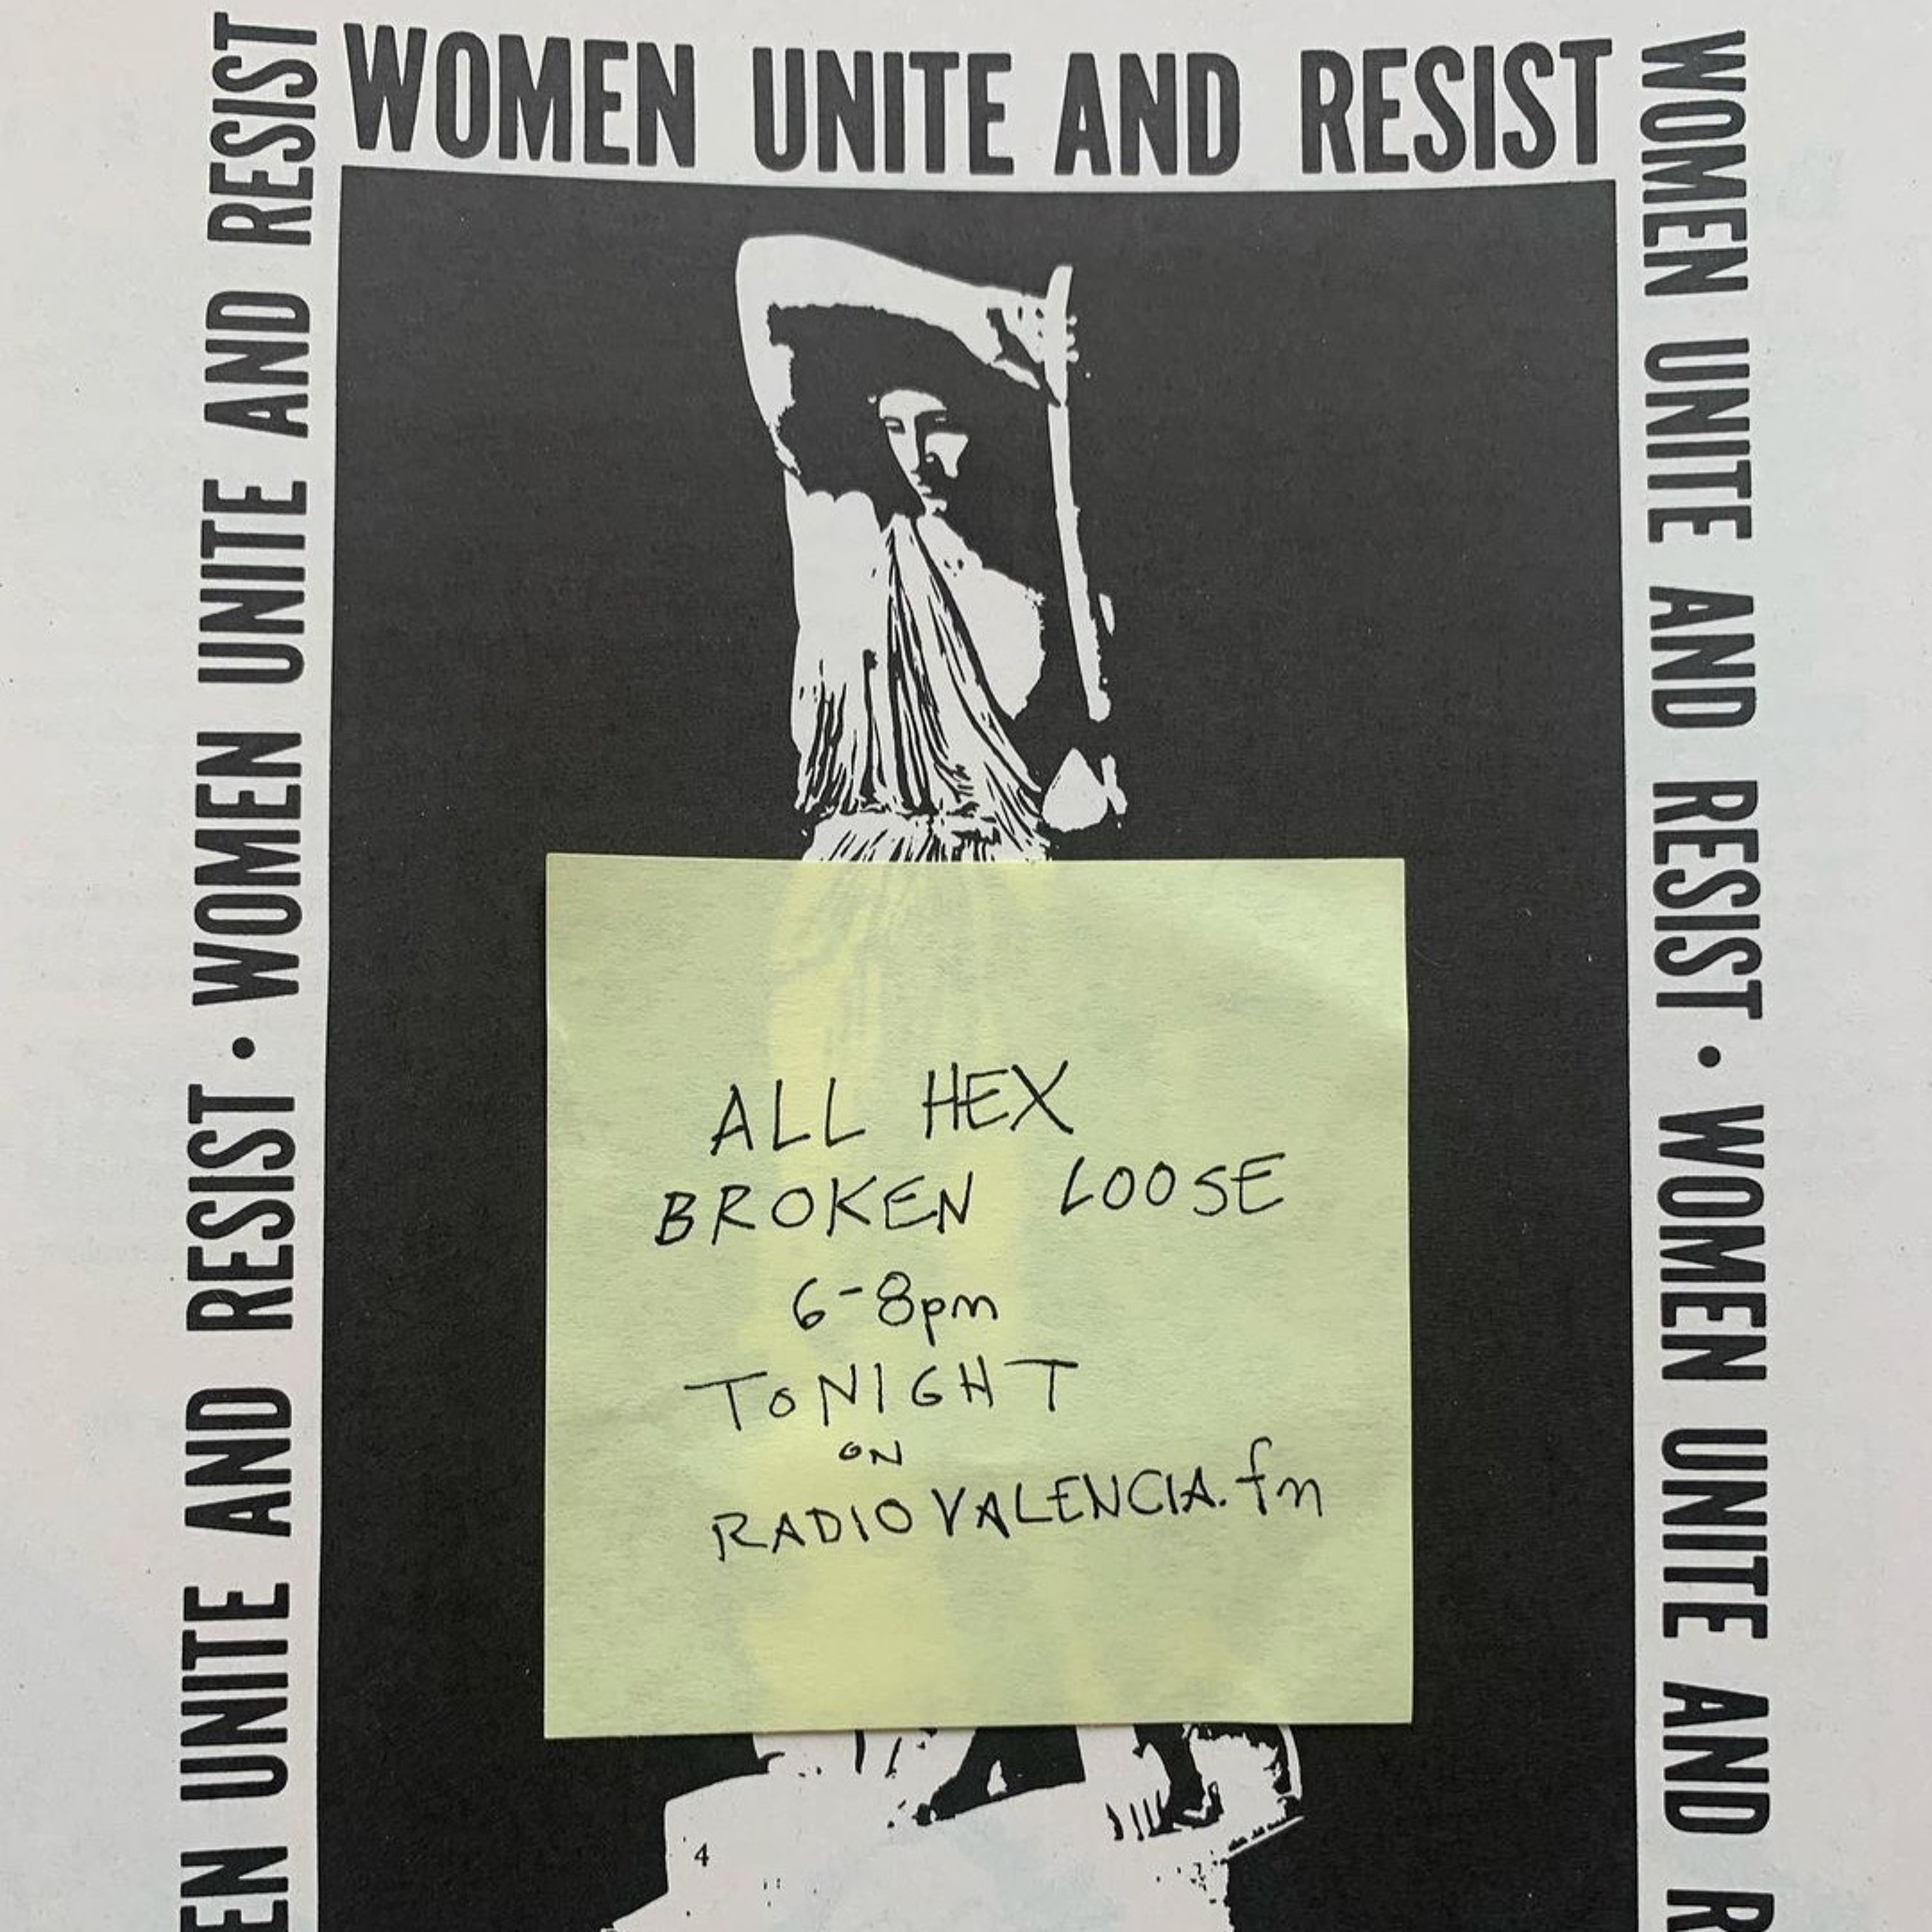 WOMEN UNITE AND RESIST
EN UNITE AND RESIST • WOMEN UNITE AND RESIST
WOMEN UNITE AND RESIST • WOMEN UNITE AND R
ALL HEX
BROKEN LOOSE
6-8pm
TONIGHT
ON
RADIOVALENCIA.fm
4